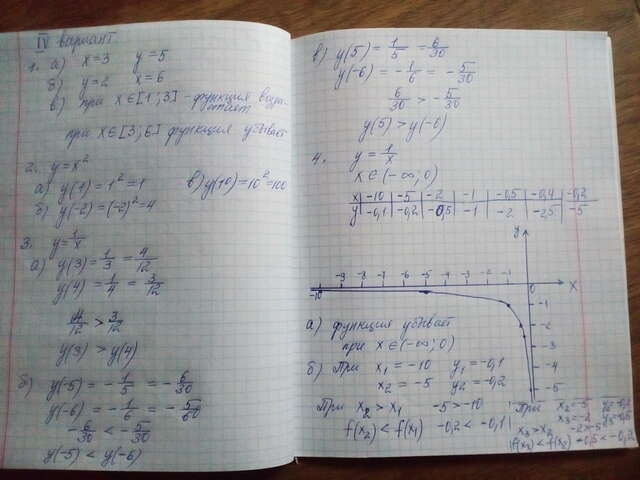 IV вариант
1. а) x=3 y=5
б) y=2 x=6
в) при x∈[1;3] - функция возрастает
при x∈[3;6] функция убывает
2. y=x²
а) y(1)=1²=1 в) y(10)=10²=100
б) y(-2)=(-2)²=4
3. y=1/x
а) y(3)=1/3=4/12
y(4)=1/4=3/12
4/12>3/12
y(3)>y(4)
б) y(-5)=-1/5=-6/30
y(-6)=-1/6=-5/60
-6/30<-5/30
y(-5)<y(-6)
в) y(5)=1/5=6/30
y(-6)=-1/6=-5/30
6/30>-5/30
y(5)>y(-6)
4. y=1/x
x∈(-∞;0)
x -10 -5 -2 -1 -0,5 -0,4 -0,2
y -0,1 -0,2 -0,5 -1 -2 -2,5 -5
y
-10 -9 -8 -7 -6 -5 -4 -3 -2 -1 0 x
-1
-2
-3
-4
-5
а) функция убывает
при x∈(-∞;0)
б) При x₁=-10 y₁=-0,1
x₂=-5 y₂=-0,2
При x₂>x₁ -5>-10
f(x₂)<f(x₁) -0,2<-0,1
При x₂=-5
x₃=-2
x₃>x₂ -2>-5
f(x₃)<f(x₂) -0,5<-0,2